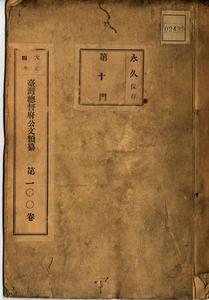 02439
永久保存
第十門
大正四年
臺灣總督府公文類纂 第一〇〇卷